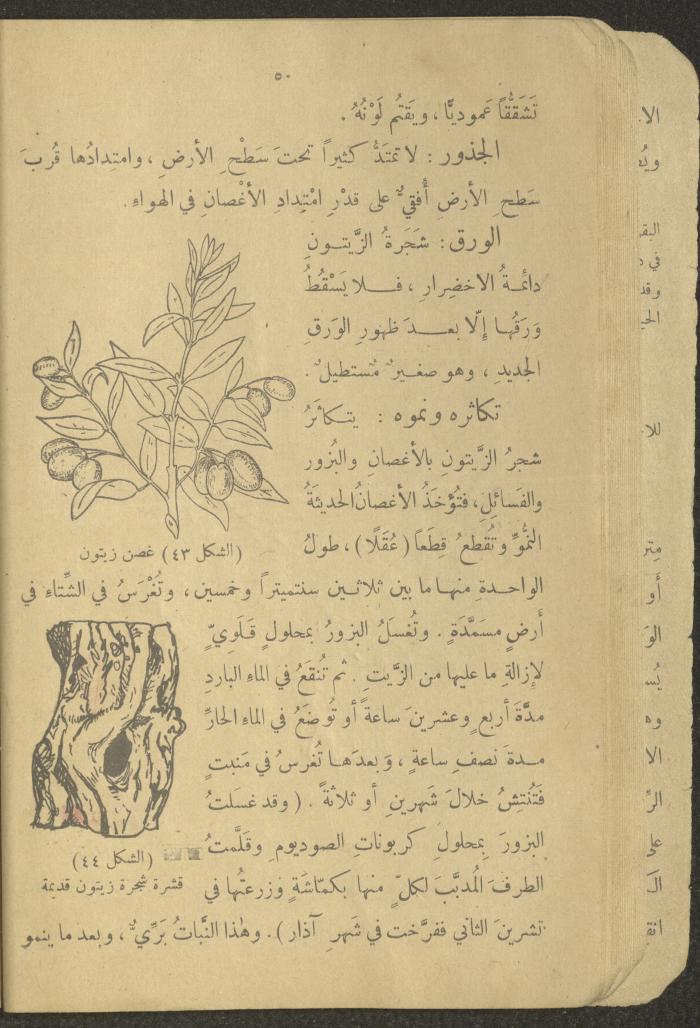 ٥٠
تَشَقُّقاً عَموديًّا ، ويَقتُم لَوْنُهُ .
الجذور : لا تمتَدُّ كثيراً تحتَ سَطْحِ الأرضِ ، وامتِدادُها قُربَ
سَطحِ الأرضِ أُفقيٌّ على قدْرِ امْتِدادِ الأغْصانِ في الهواءِ.
الورق : شَجَرةُ الزَّيتونِ
دائمةُ الاخضِرارِ ، فلا يَسْقُطُ
وَرَقُها إلّا بعد ظهورِ الوَرقِ
الجديدِ ، وهو صغيرٌ مُستطيلٌ .
تكاثره ونموه : يتكاثَرُ
شجرُ الزَّيتونِ بالأغصانِ والبُزور
والفَسائلِ، فتُؤخَذُ الأغصانُ الحديثةُ
النُّموِّ وتُقطعُ قِطَعاً (عُقَلًا) ، طولُ
(الشكل ٤٣) غصن زيتون
الواحدةِ منها ما بين ثلاثين سنتميتراً وخمسين ، وتُغْرَسُ في الشِّتاءِ في
أَرضٍ مسَمَّدَةٍ . وتُغسَلُ البزورُ بمحلولٍ قَلَوِيٍّ
لإزالةِ ما عليها من الزَّيتِ . ثم تُنقَعُ في الماءِ الباردِ
مدَّةَ أربعٍ وعشرينَ ساعةً أو تُوضَعُ في الماءِ الحارِّ
مدةَ نصفِ ساعةٍ ، وَبعدَها تُغرسُ في مَنبتٍ
فَتُنْتِشُ خلالَ شَهرينِ أو ثلاثةً . ( وقد غسَلتُ
البزورَ بِمحلولِ كربوناتِ الصوديوم وقَلَّمتُ
(الشكل ٤٤)
الطرفَ المُدبَّبَ لكلٍّ منها بكمّاشَةٍ وزرعتُها في
قشرة شجرة زيتون قديمة
تشرينَ الثاني ففرَّخت في شَهرِ آذار ) . وهٰذا النَّباتُ بَرِّيٌّ ، وبعد ما ينمو